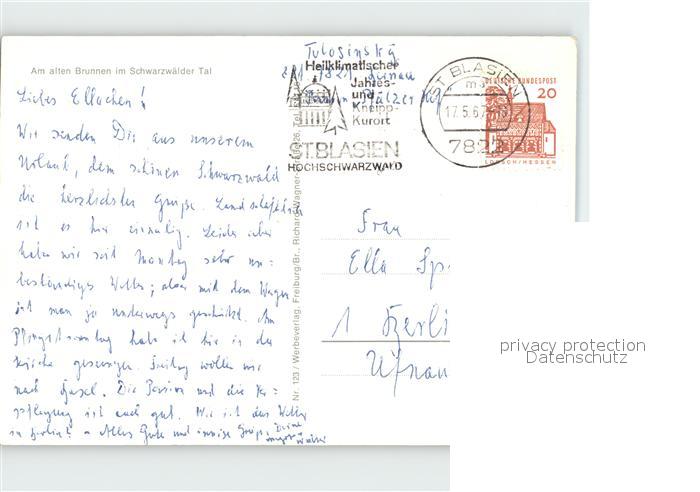 Am alten Brunnen im Schwarzwälder Tal
Liebes Ellachen!
Wir senden Dir aus unserem
Urlaub, dem schönen Schwarzwald
die herzlichsten Grüße. Landschaftlich
ist es hier einmalig. Leider aber
haben wir seit Montag sehr un-
beständiges Wetter; aber mit dem Wagen
ist man ja unterwegs geschützt. Am
Pfingstsonntag habe ich hier in der
Kirche gesungen. Freitag wollen wir
nach Basel. Die Pension und die Ver-
pflegung ist auch gut. Wie ist das Wetter
in Berlin? - Alles Gute und innige Grüße Deine
Nr. 123 / Werbeverlag, Freiburg/Br., Richard Wagner
Heilklimatischer
Jahres-
und
Kneipp-
Kurort
ST.BLASIEN
HOCHSCHWARZWALD
ST BLASIEN
17.5.67
782
DEUTSCHE BUNDESPOST
20
LORSCH/HESSEN
Frau
Ella
1 Berli
privacy protection
Datenschutz